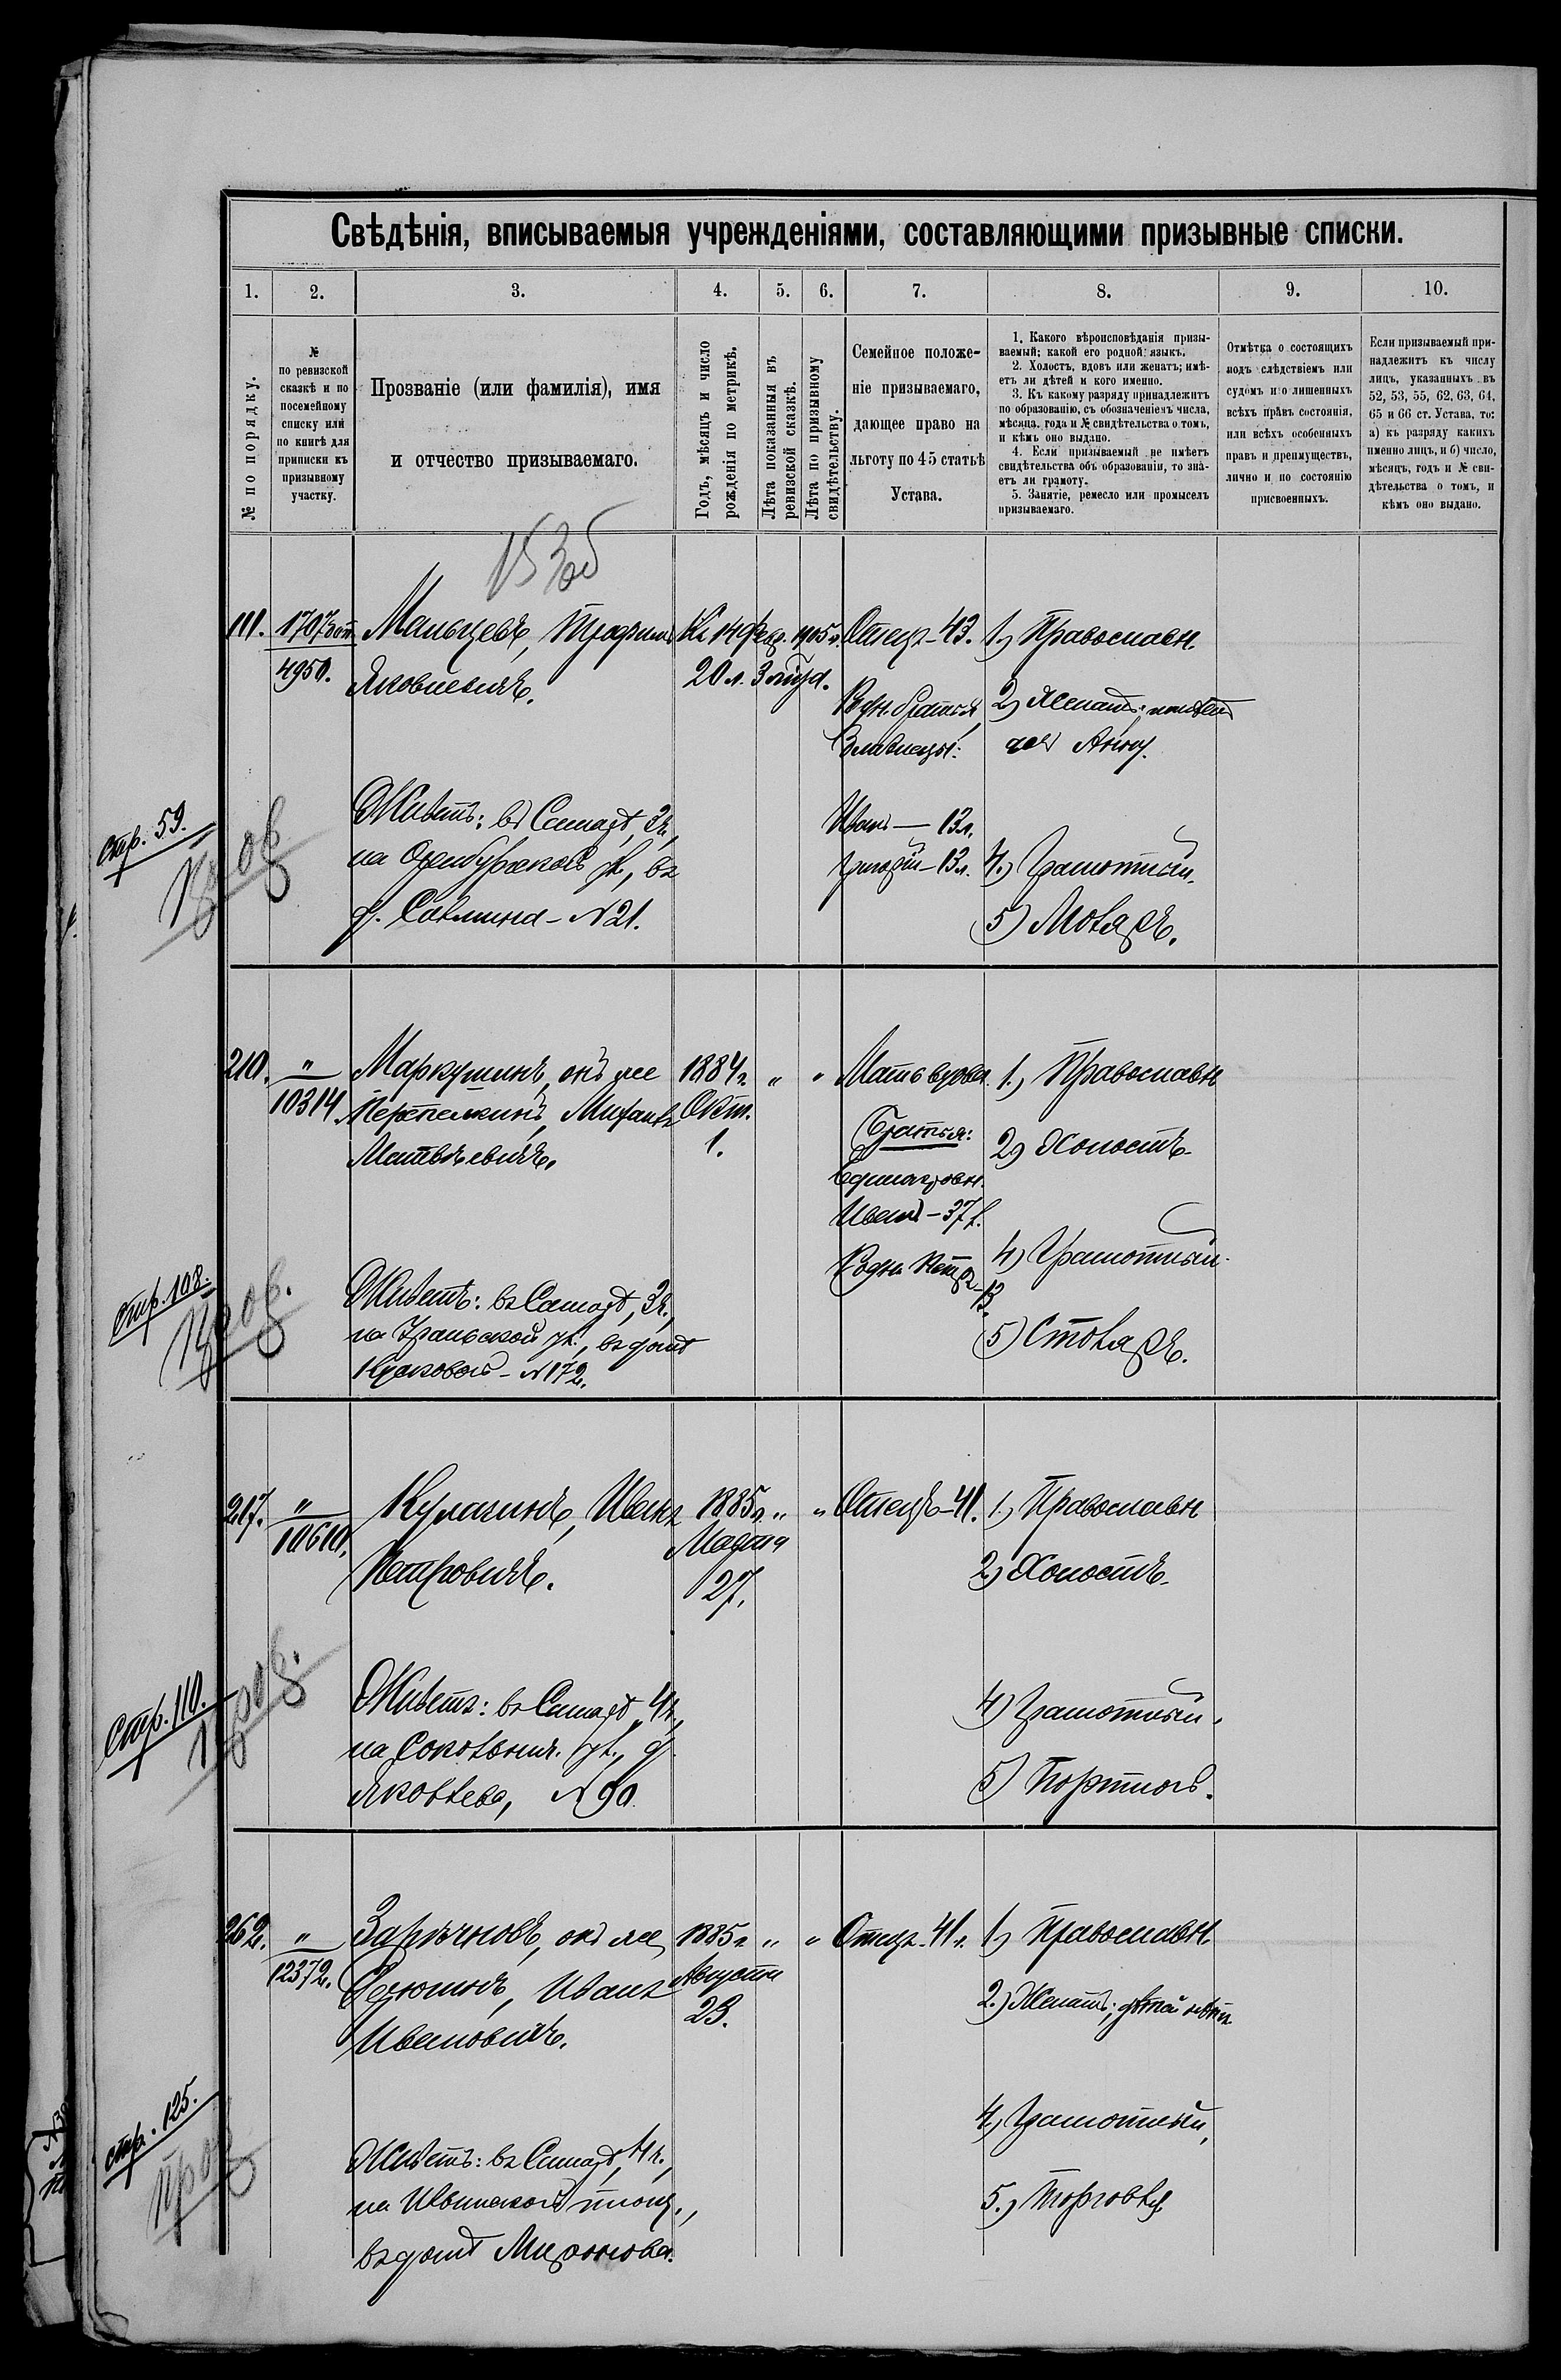 Свѣдѣнія, вписываемыя учрежденіями, составляющими призывные списки.
1. 2. 3. 4. 5. 6. 7. 8. 9. 10.
№ по порядку.
№
по ревизской
сказкѣ и по
посемейному
списку или
по книгѣ для
приписки къ
призывному
участку.
Прозваніе (или фамилія), имя
и отчество призываемаго.
Годъ, мѣсяцъ и число
рожденія по метрикѣ.
Лѣта показанныя въ
ревизской сказкѣ.
Лѣта по призывному
свидѣтельству.
Семейное положе-
ніе призываемаго,
дающее право на
льготу по 45 статьѣ
Устава.
1. Какого вѣроисповѣданія призы-
ваемый; какой его родной языкъ.
2. Холостъ, вдовъ или женатъ; имѣ-
етъ ли дѣтей и кого именно.
3. Къ какому разряду принадлежитъ
по образованію, съ обозначеніемъ числа,
мѣсяца, года и № свидѣтельства о томъ,
и кѣмъ оно выдано.
4. Если призываемый не имѣетъ
свидѣтельства объ образованіи, то зна-
етъ ли грамоту.
5. Занятіе, ремесло или промыселъ
призываемаго.
Отмѣтка о состоящихъ
подъ слѣдствіемъ или
судомъ и о лишенныхъ
всѣхъ правъ состоянія,
или всѣхъ особенныхъ
правъ и преимуществъ,
лично и по состоянію
присвоенныхъ.
Если призываемый при-
надлежитъ къ числу
лицъ, указанныхъ въ
52, 53, 55, 62, 63, 64,
65 и 66 ст. Устава, то:
а) къ разряду какихъ
именно лицъ, и б) число,
мѣсяцъ, годъ и № сви-
дѣтельства о томъ, и
кѣмъ оно выдано.
111. 1707 Мальцевъ, Трофимъ Къ 14 Февр. 1905 г. Отецъ - 43. 1) Православн.
4950. Яковлевичъ. 20 л. 3
Родн. братья 2) Женатъ; имѣетъ
Близнецы: дочь Анну.
Живетъ: въ Самарѣ, 3 ч., Иванъ — 13 л.
Стр. 59. Пров. на Оренбургской ул., въ Григорій - 13 л. 4.) Грамотный.
д. Савлина - № 21. 5) Моляръ.
210. " Маркушинъ, онъ же 1884 г. " " Мать вдова. 1.) Православн
10314. Перепелкинъ, Михаилъ Окт. Братья:
Матвѣевичъ. 1. 2) Холостъ.
Единокровн.
Иванъ - 37 л.
Родн. Петръ - 13. 4) Грамотный.
Стр. 108. Пров. Живетъ: въ Самарѣ, 3 ч.,
на Уральской ул., въ домѣ 5) Столяръ.
№ 172.
217. " Кулагинъ, Иванъ 1885 г. " " Отецъ - 41. 1.) Православн
10610. Петровичъ. Марта 2.) Холостъ.
27.
Стр. 110. Пров. Живетъ: въ Самарѣ, 4 ч., 4) Грамотный.
на Соколовнич. ул., д.
Яковлева, № 90. 5) Портной.
262. " Зарѣчновъ, онъ же 1885 г. " " Отецъ - 41 г. 1) Православн.
12372. Иванъ Августа
Ивановичъ. 23. 2.) Женатъ; дѣтей нѣтъ.
Стр. 125. Пров 4.) Грамотный,
Живетъ: въ Самарѣ, 4 ч.,
на Ильинской площ., 5.) Торговля
въ домѣ Миронова.